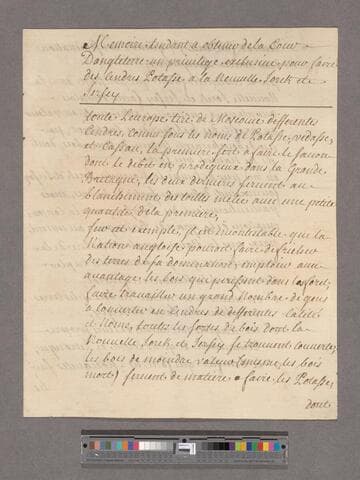 Memoire tendant a obtenir de la Cour
Dangleterre un privilege exclusive pour faire
des Cendres Potasse a la Nouvelle Iorck et
Jersey
toute Leurope tire de Moscovie differentes
Cendres, connu sous les noms de Potasse, vedasse,
et Cassou, la premiere sert a faire le savon
dont le debit est prodigieux dans la Grande
Bretagne, les deux dernieres servent au
blanchiment des toilles melée avec une petite
quantité de la premiere;
sur cet exemple, il est incontestable que la
Nation angloise pouroit faire de
des terres de sa domination, employer avec
avantage les bois que perissent dans les forets
faire travailler un grand Nombre de gens
a convertir en Cendres de differentes Calité
et Noms, toutes les sortes de bois dont la
Nouvelle Iorck et Jersey se trouvent couverte;
les bois de moindre valeur (comme les bois
mort) servent de matiere a faire les Potasse,
dont